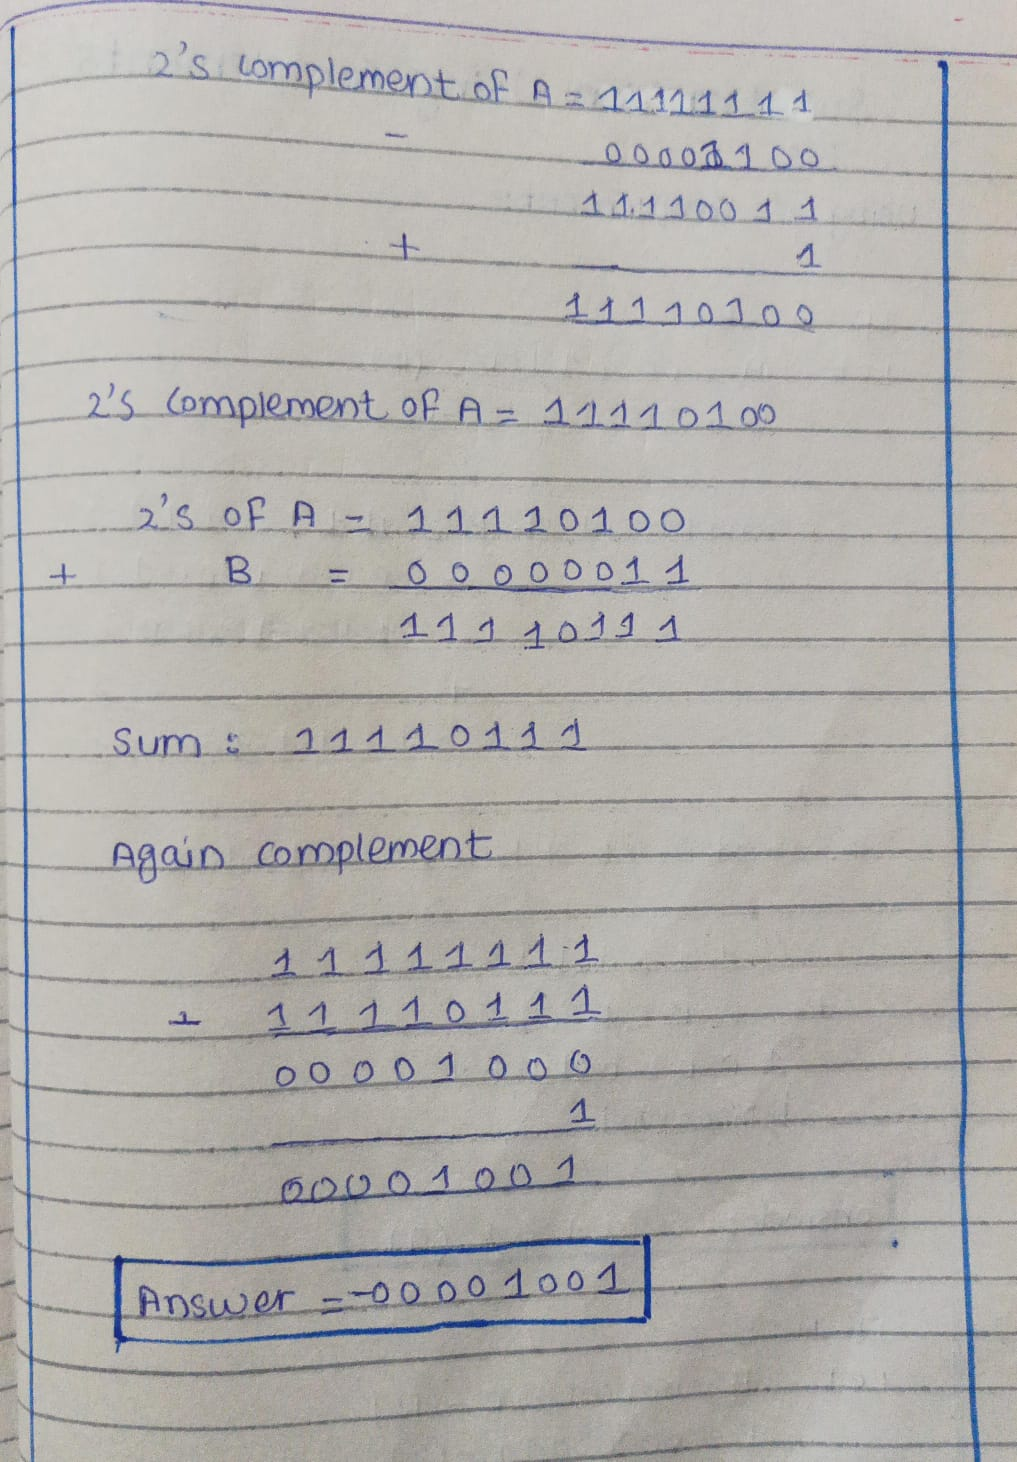 2's complement of A = 11111111
- 00001100
11110011
+ 1
11110100
2's complement of A = 11110100
2's of A = 11110100
+ B = 00000011
11110111
Sum : 11110111
Again complement
11111111
- 11110111
00001000
1
00001001
Answer = -00001001